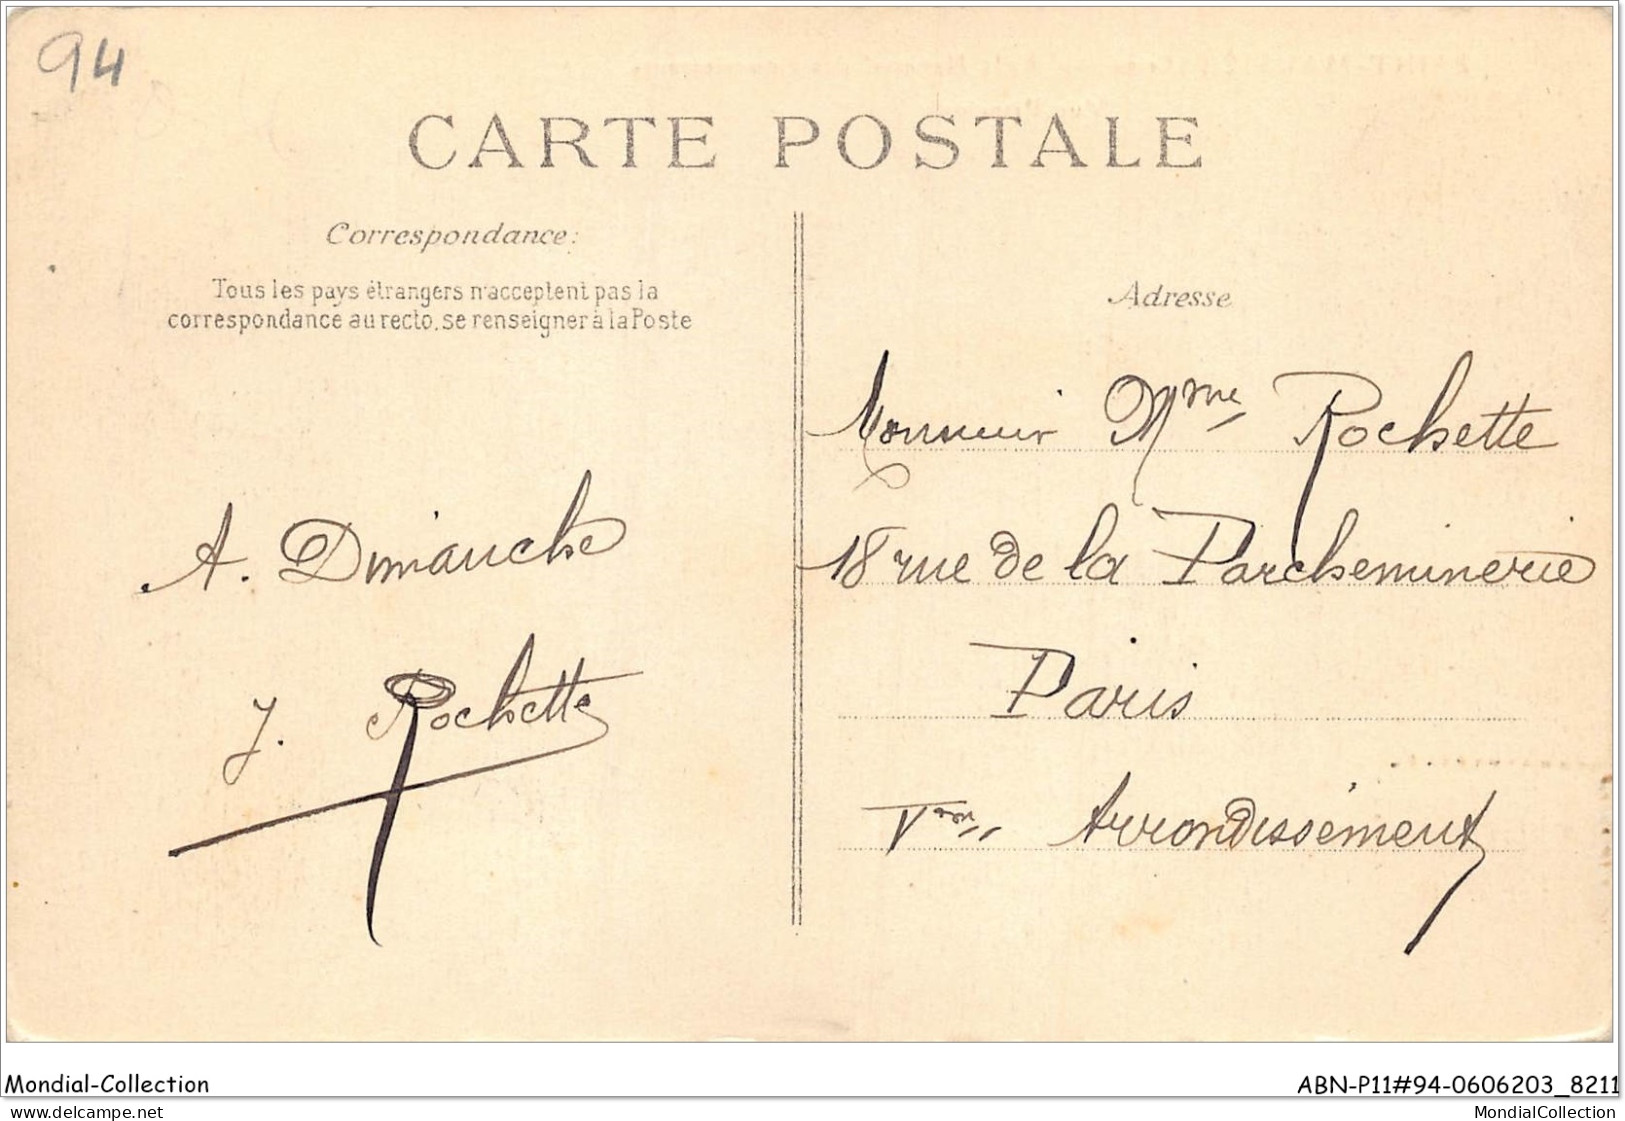 94
CARTE POSTALE
Correspondance:
Tous les pays étrangers n'acceptent pas la
correspondance au recto, se renseigner à la Poste
A. Dimanche
J. Rochette
Adresse
Monsieur Mme Rochette
18 rue de la Parcheminerie
Paris
Vme Arrondissement
Mondial-Collection
ABN-P11#94-0606203_8211
delcampe.net
MondialCollection